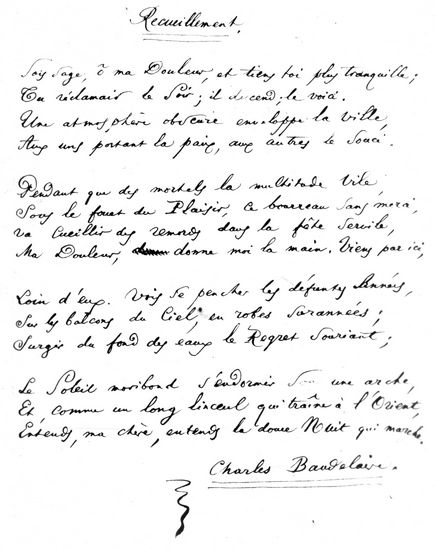 Recueillement.
Sois Sage, ô ma Douleur, et tiens toi plus tranquille ;
Tu réclamais le Soir ; il descend ; le voici.
Une atmosphère obscure enveloppe la ville,
Aux uns portant la paix, aux autres le Souci.
Pendant que des mortels la multitude Vile,
Sous le fouet du Plaisir, ce bourreau sans merci,
va Cueillir des remords dans la fête Servile,
Ma Douleur, donne moi la main. Viens par ici,
Loin d'eux. Vois Se pencher les défuntes Années,
Sur les balcons du Ciel, en robes Surannées ;
Surgir du fond des eaux le Regret Souriant ;
Le Soleil moribond s'endormir Sous une arche,
Et comme un long linceul qui traîne à l'Orient,
Entends, ma chère, entends la douce Nuit qui marche.
Charles Baudelaire.